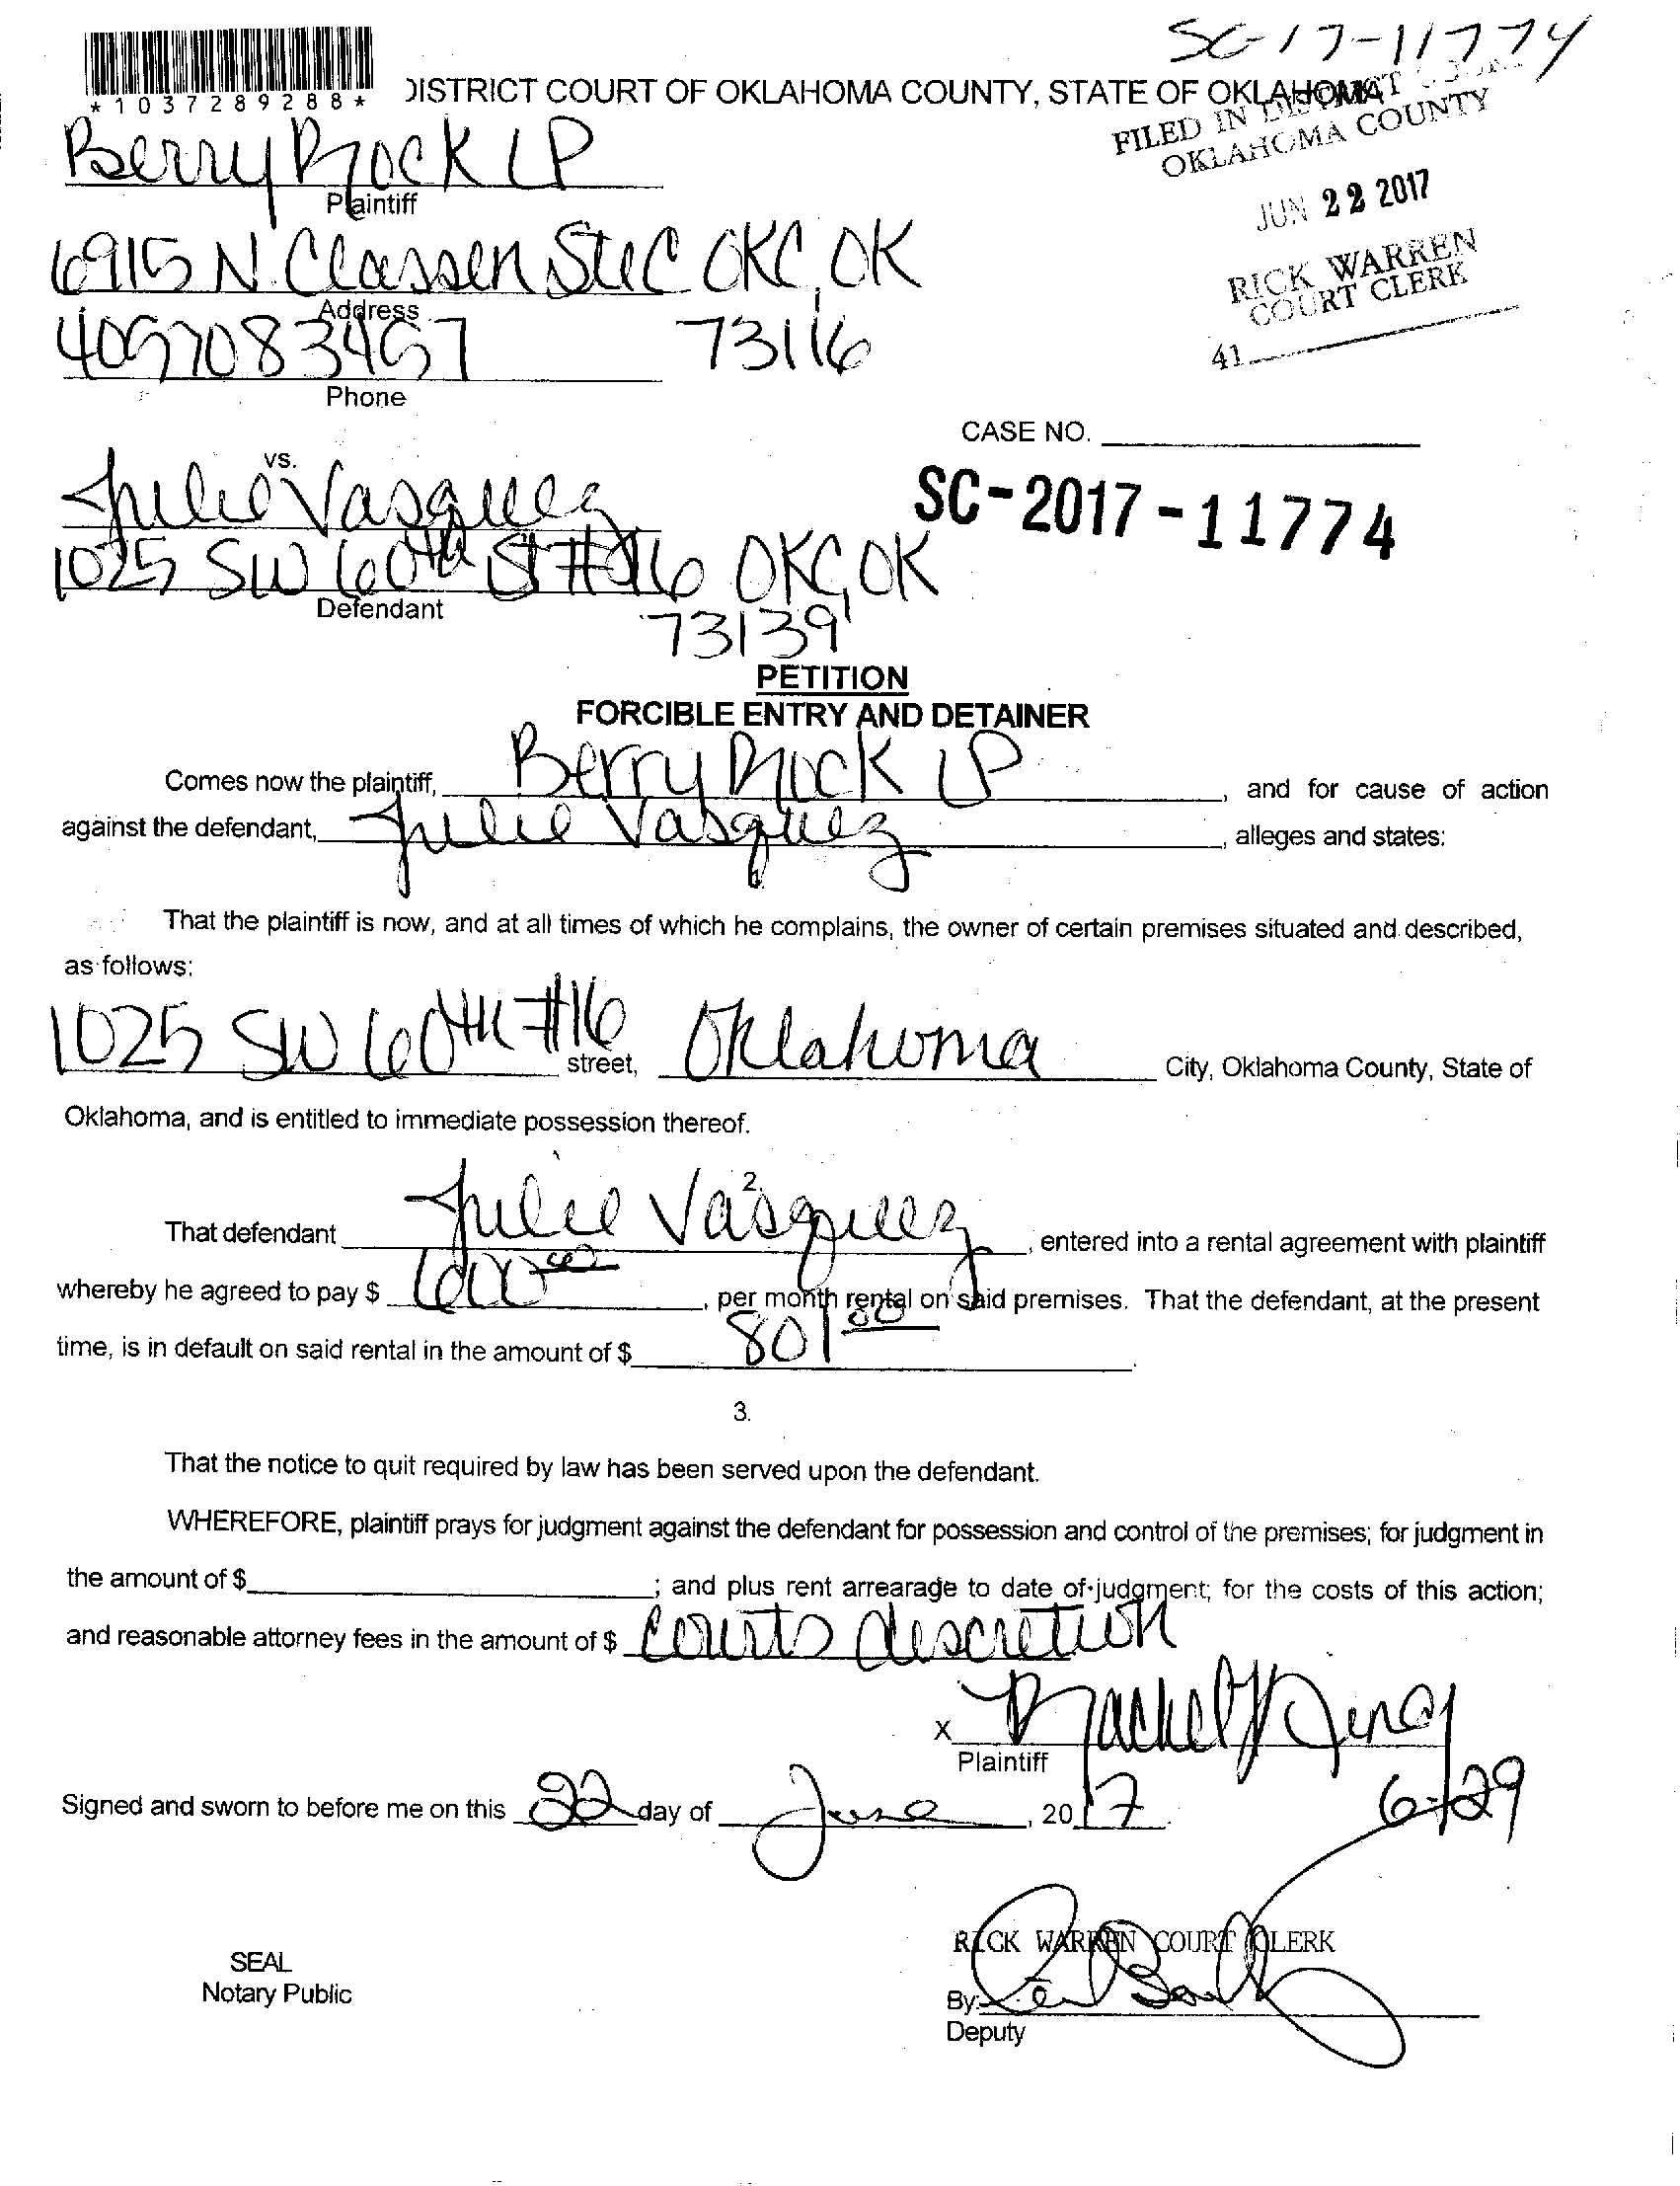 SC-17-11774
*1037289288*
DISTRICT COURT OF OKLAHOMA COUNTY, STATE OF OKLAHOMA
FILED IN DISTRICT COURT
OKLAHOMA COUNTY
JUN 22 2017
RICK WARREN
COURT CLERK
41
Berry Rock LP
Plaintiff
6915 N. Classen Ste C OKC, OK
Address
4057083457 73116
Phone
CASE NO.
vs.
Julie Vasquez
SC-2017-11774
1025 SW 60th St #16 OKC, OK
Defendant
73139
PETITION
FORCIBLE ENTRY AND DETAINER
Comes now the plaintiff, Berry Rock LP, and for cause of action
against the defendant, Julie Vasquez, alleges and states:
1.
That the plaintiff is now, and at all times of which he complains, the owner of certain premises situated and described,
as follows:
1025 SW 60th #16 street, Oklahoma City, Oklahoma County, State of
Oklahoma, and is entitled to immediate possession thereof.
2.
That defendant Julie Vasquez, entered into a rental agreement with plaintiff
whereby he agreed to pay $ 600.00, per month rental on said premises. That the defendant, at the present
time, is in default on said rental in the amount of $ 801.00.
3.
That the notice to quit required by law has been served upon the defendant.
WHEREFORE, plaintiff prays for judgment against the defendant for possession and control of the premises; for judgment in
the amount of $ ; and plus rent arrearage to date of judgment; for the costs of this action;
and reasonable attorney fees in the amount of $ courts discretion
X Rachel
Plaintiff
Signed and sworn to before me on this 22 day of June, 2017 6-29
RICK WARREN COURT CLERK
SEAL
Notary Public
By:
Deputy